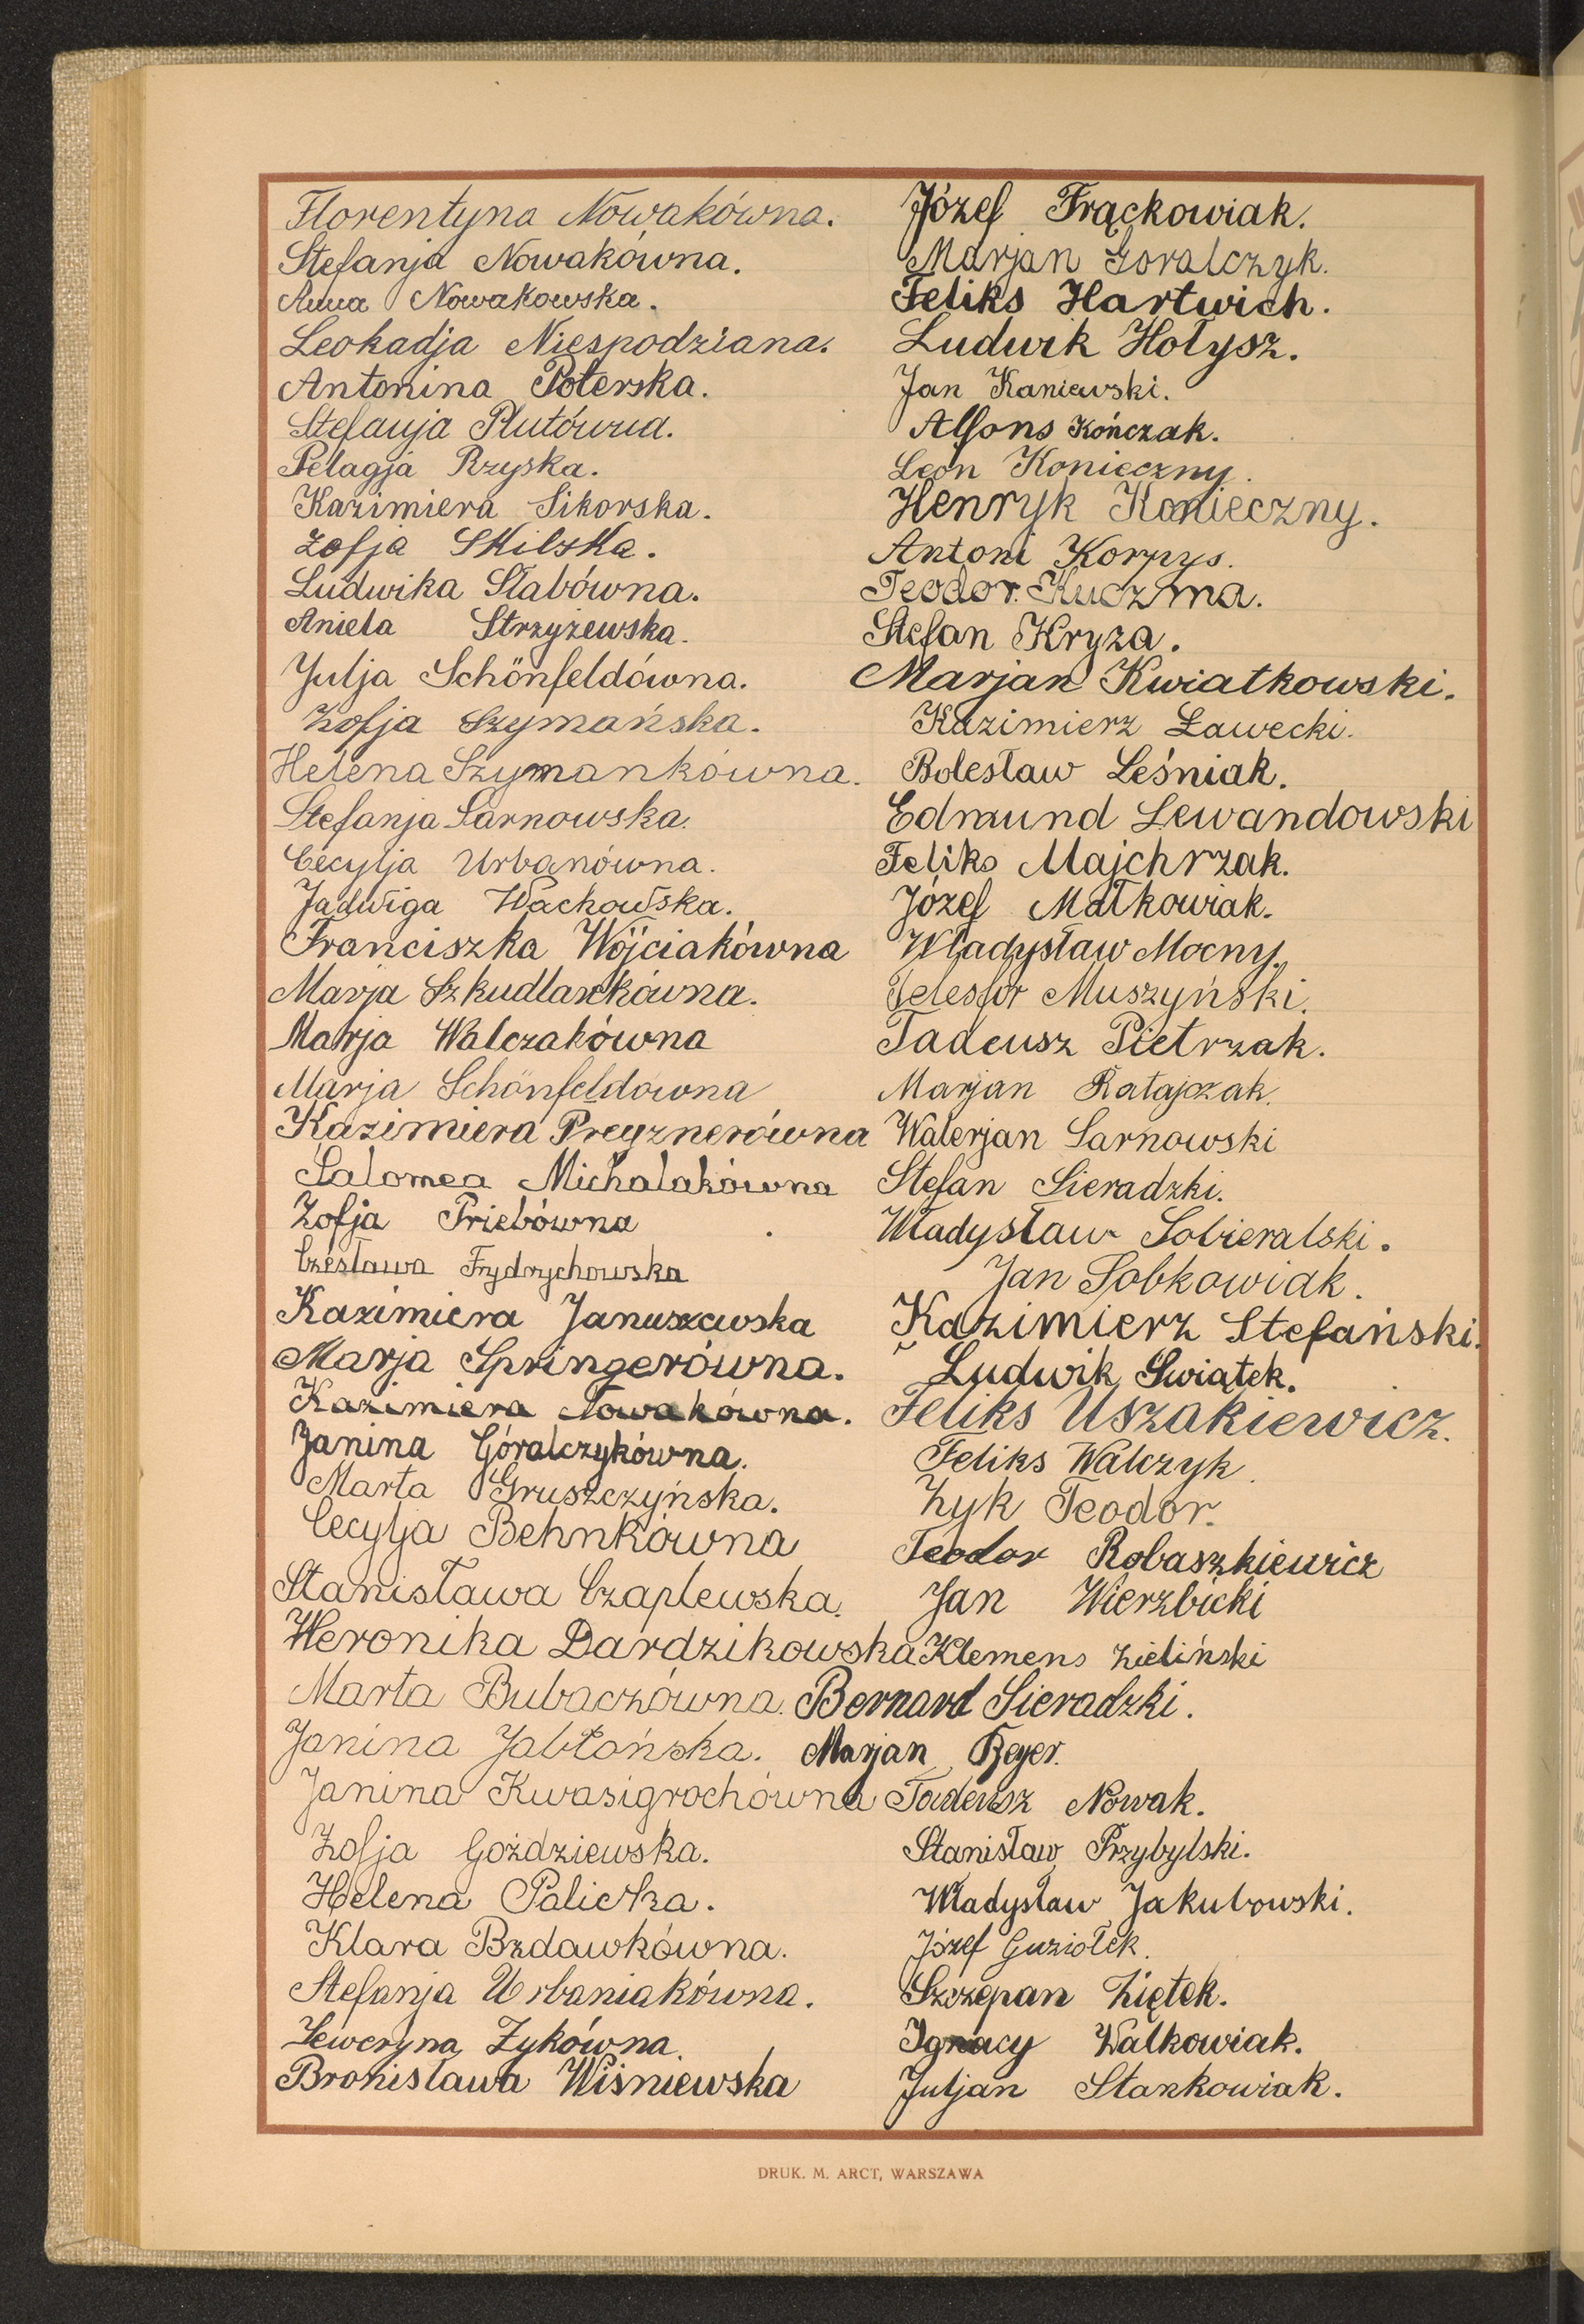 Florentyna Nowakówna.
Stefanja Nowakówna.
Anna Nowakowska.
Leokadja Niespodziana.
Antonina Poterska.
Stefanja Plutówna.
Pelagja Rzyska.
Kazimiera Sikorska.
Zofja Skilska.
Ludwika Słabówna.
Aniela Strzyżewska.
Julja Schönfeldówna.
Zofja Szymańska.
Helena Szymankówna.
Stefanja Sarnowska.
Cecylja Urbanówna.
Jadwiga Wackowska.
Franciszka Wójciakówna
Marja Szkudlarkówna.
Marja Walczakówna
Marja Schönfeldówna
Kazimiera Preyznerówna
Salomea Michalakówna
Zofja Priebówna
Czesława Frydrychowska
Kazimiera Januszewska
Marja Springerówna.
Kazimiera Nowakówna.
Janina Góralczykówna.
Marta Gruszczyńska.
Cecylja Behnkówna
Stanisława Czaplewska.
Weronika Dardzikowska
Marta Bubaczówna.
Janina Jabłońska.
Janina Kwasigrochówna
Zofja Goździewska.
Helena Palicka.
Klara Bzdawkówna.
Stefanja Urbaniakówna.
Seweryna Zykówna.
Bronisława Wiśniewska
Józef Frąckowiak.
Marjan Goralczyk.
Feliks Hartwich.
Ludwik Hołysz.
Jan Kaniewski.
Alfons Kończak.
Leon Konieczny.
Henryk Konieczny.
Antoni Korpys.
Teodor Kuczma.
Stefan Kryza.
Marjan Kwiatkowski.
Kazimierz Ławecki.
Bolesław Leśniak.
Edmund Lewandowski
Feliks Majchrzak.
Józef Matkowiak.
Władysław Mocny.
Telesfor Muszyński.
Tadeusz Pietrzak.
Marjan Ratajczak.
Walerjan Sarnowski
Stefan Sieradzki.
Władysław Sobieralski.
Jan Sobkowiak.
Kazimierz Stefański.
Ludwik Swiątek.
Feliks Uszakiewicz.
Feliks Walczyk.
Zyk Teodor.
Teodor Robaszkiewicz
Jan Wierzbicki
Klemens Zieliński
Bernard Sieradzki.
Marjan Beyer.
Tadeusz Nowak.
Stanisław Przybylski.
Władysław Jakubowski.
Józef Guziołek.
Szczepan Ziętek.
Ignacy Walkowiak.
Juljan Stankowiak.
DRUK. M. ARCT, WARSZAWA